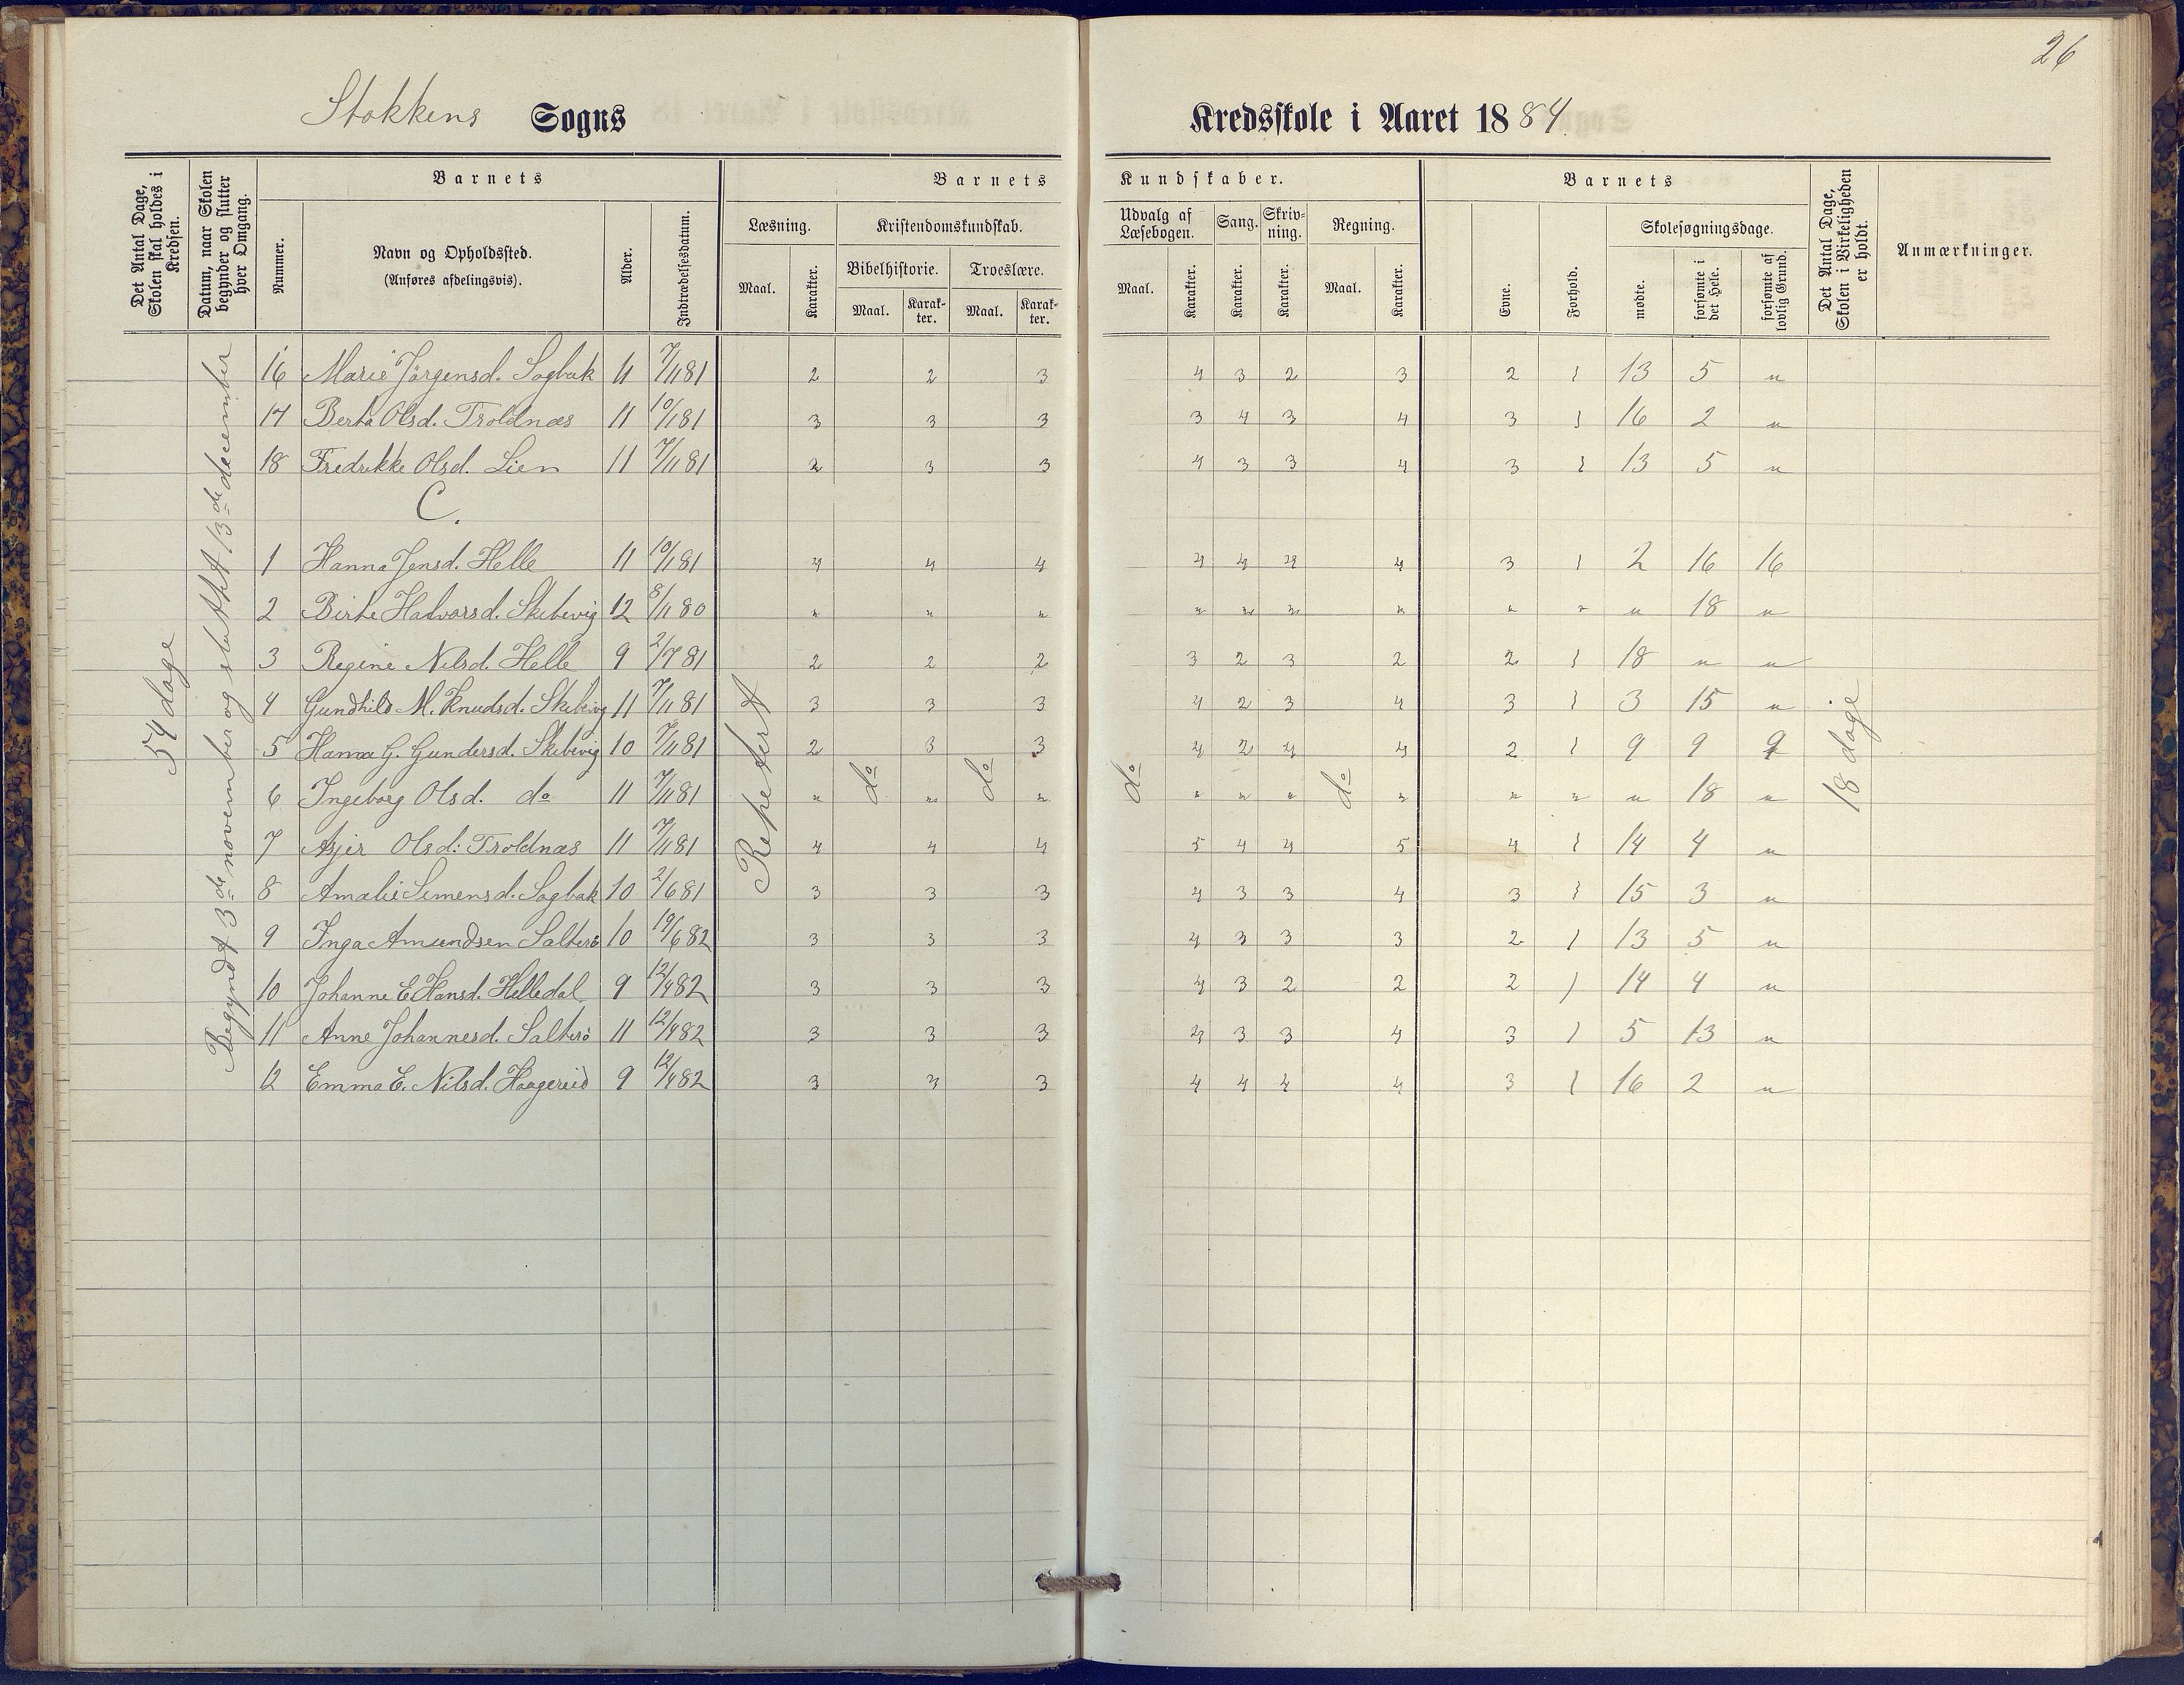 26
Stokkens Sogns Kredsskole i Aaret 1884.
Det Antal Dage, Skolen skal holdes i Kredsen.
Datum, naar Skolen begynder og slutter hver Omgang.
Barnets
Nummer.
Navn og Opholdssted.
(Anføres afdelingsvis).
Alder.
Indtrædelsesdatum.
Barnets Kundskaber.
Læsning.
Maal.
Karakter.
Kristendomskundskab.
Bibelhistorie.
Maal.
Karakter.
Troeslære.
Maal.
Karakter.
Udvalg af Læsebogen.
Maal.
Karakter.
Sang.
Karakter.
Skrivning.
Karakter.
Regning.
Maal.
Karakter.
Barnets
Evne.
Forhold.
Skolesøgningsdage.
mødte.
forsømte i det Hele.
forsømte af lovlig Grund.
Det Antal Dage, Skolen i Virkeligheden er holdt.
Anmærkninger.
54 dage
Begyndt 3de november og sluttet 13de december
Repetert
do do do do
18 dage
16 Marie Jörgensd. Sagbak 11 7/11 81 2 2 3 4 3 2 3 2 1 13 5 "
17 Berta Olsd. Troldnæs 11 10/1 81 3 3 3 3 4 3 4 3 1 16 2 "
18 Fredrikke Olsd. Lien 11 7/11 81 2 3 3 4 3 3 4 3 1 13 5 "
C.
1 Hanna Jensd. Helle 11 10/1 81 4 4 4 4 4 4 4 3 1 2 16 16
2 Birte Halvorsd. Skibevig 12 8/11 80 " " " " " " " " " " 18 "
3 Regine Nilsd. Helle 9 2/7 81 2 2 2 3 2 3 2 2 1 18 " "
4 Gundhild M. Knudsd. Skibevig 11 7/11 81 3 3 3 4 2 3 4 3 1 3 15 "
5 Hanna G. Gundersd. Skibevig 10 7/11 81 2 3 3 4 2 4 4 2 1 9 9 9
6 Ingeborg Olsd. do 11 7/11 81 " " " " " " " " " " 18 "
7 Asjer Olsd: Troldnæs 11 7/11 81 4 4 4 5 4 4 5 4 1 14 4 "
8 Amalie Simensd. Sagbak 10 2/6 81 3 3 3 4 3 3 4 3 1 15 3 "
9 Inga Amundsen Salterö 10 19/6 82 3 3 3 4 3 3 3 2 1 13 5 "
10 Johanne E. Hansd. Helledal 9 12/4 82 3 3 3 4 3 2 2 2 1 14 4 "
11 Anne Johannesd. Salterö 11 12/4 82 3 3 3 4 3 3 4 3 1 5 13 "
12 Emma E. Nilsd. Haagereid 9 12/4 82 3 3 3 4 4 4 4 3 1 16 2 "